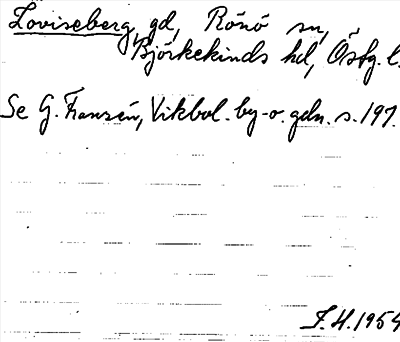 Loviseberg, gd, Rönö sn,
Björkekinds hd, Östg. l.
Se G. Franzén, Vikbol. by- o. gdn. s. 197.
F.H. 1954